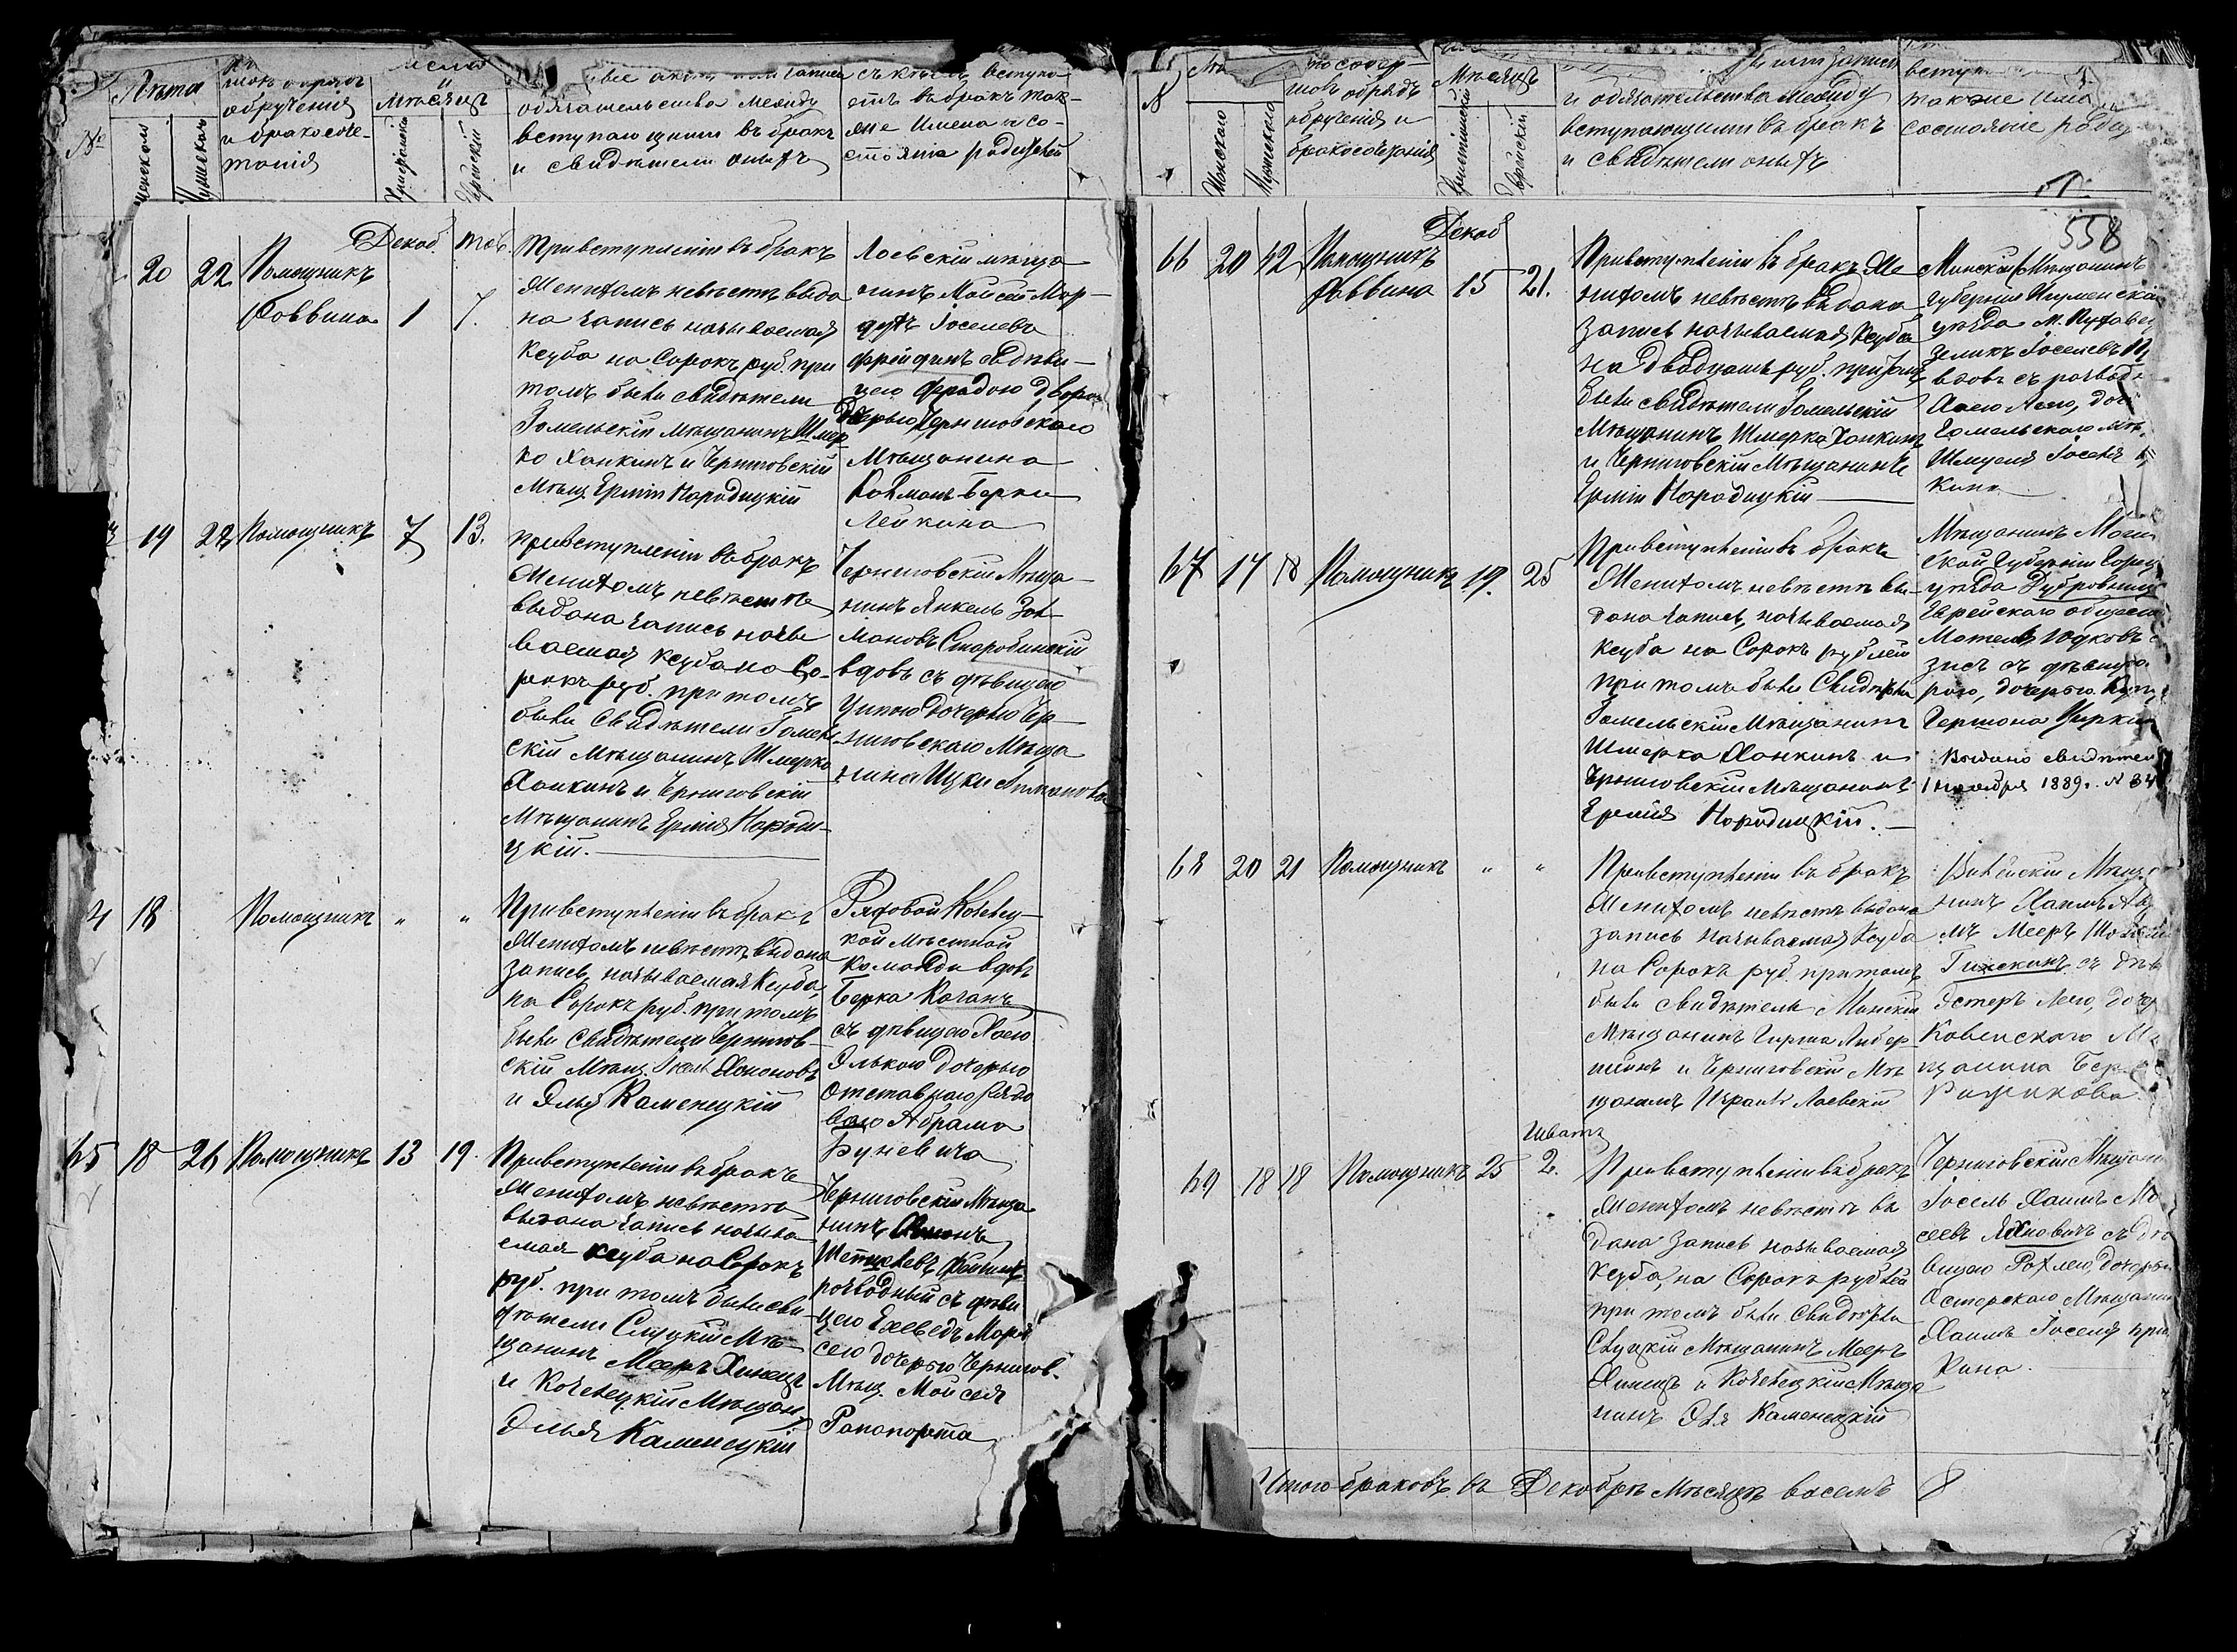 Лѣта
обрученія
и бракосоче-
танія
Мѣсяцъ
обязательства между
вступающими въ бракъ
и свидѣтели оныхъ
съ кѣмъ вступа-
етъ въ бракъ так-
же имена и со-
стояніе родителей
№
женскаго
мужескаго
Декаб.
20 22 Помощникъ
Раввина 1 7.
При вступленіи въ бракъ
Женихомъ невѣстѣ выда
на запись называемая
Ксуба на Сорокъ руб. при
томъ были свидѣтели
Гомельскій мѣщанинъ Шмер
ко Ханкинъ и Черниговскій
Мѣщ. Ермія Народицкій
Лоевскій мѣща
нинъ Мойсей Мор-
духъ Іоселевъ
Фрейдинъ съ дѣви-
цею Фрадою Двором
дочерью Черниговскаго
Мѣщанина
Лейкина
19 22 Помощникъ 7 13.
При вступленіи въ бракъ
Женихомъ невѣстѣ
выдана запись назы
ваемая Ксуба на Со-
рокъ руб. при томъ
были свидѣтели Гомель
скій мѣщанинъ Шмерко
Ханкинъ и Черниговскій
Мѣщанинъ Ермія Народи-
цкій.
Черниговскій Мѣща-
нинъ Янкель Зал-
мановъ Старобинскій
вдовъ съ дѣвицею
Ципою дочерью Чер-
ниговскаго Мѣща
нина Ицки
4 18 Помощникъ " "
При вступленіи въ бракъ
Женихомъ невѣстѣ выдана
запись, называемая Ксуба,
на Сорокъ руб. при томъ
были свидѣтели Чернигов-
скій Мѣщ.
и Элья Каменецкій
Рядовой Козелец-
кой Мѣстной
Команды вдовъ
Берка Коганъ
съ дѣвицею Хаею
Элькою дочерью
отставнаго рядо
ваго Абрама
Буневича
65 18 26 Помощникъ 13 19.
При вступленіи въ бракъ
Женихомъ невѣстѣ
выдана запись называ
емая Ксуба на Сорокъ
руб. при томъ были сви-
дѣтели Слуцкій Мѣ-
щанинъ Мееръ Хинецъ
и Козелецкій Мѣщан.
Элья Каменецкій
Черниговскій Мѣща
нинъ
разводный съ дѣви
цею
дочерью Чернигов.
Мѣщ. Мойсея
Рапопорта
№
Женскаго
Мужескаго
обрученія и
бракосочетанія
Мѣсяцъ
Христіанскій
Еврейскій
и обязательства между
вступающими въ бракъ
и свидѣтели оныхъ
также имена
состояніе роди
558
Декаб
66 20 42 Помощникъ
Раввина 15 21.
При вступленіи въ бракъ Же
нихомъ невѣстѣ выдана
запись называемая Ксуба
на двадцать руб. при томъ
были свидѣтели Гомельскій
Мѣщанинъ Шмерка Ханкинъ
и Черниговскій Мѣщанинъ
Ермія Народицкій
Минской Мѣщанинъ
губерніи Игуменскаго
уѣзда м.
Зеликъ Іоселевъ
вдовъ съ развод
Хаею Леею, доч
Гомельскаго мѣ
Шмуеля
кина
67 17 18 Помощникъ 19. 25
При вступленіи въ бракъ
Женихомъ невѣстѣ вы-
дана запись, называемая
Ксуба на Сорокъ рублей
при томъ были свидѣтели
Гомельскій Мѣщанинъ
Шмерка Ханкинъ и
Черниговскій Мѣщанинъ
Еремія Народицкій.
Мѣщанинъ Моги
ской Губерніи Горец
уѣзда Дубровниц
Еврейскаго общест
съ дѣвицею
рою, дочерью
Гершона
Выдано свидѣтел
1 ноября 1889г. № 34
68 20 21 Помощникъ " "
При вступленіи въ бракъ
Женихомъ невѣстѣ выдана
запись называемая Ксуба
на Сорокъ руб. при томъ
были свидѣтели Минскій
Мѣщанинъ Гирша
и Черниговскій Мѣ
щанинъ Израиль Лаевскій
Мѣщ
нинъ Хаимъ
Мееръ
съ дѣв
Эстеръ Леею, дочер
Ковенскаго Мѣ
щанина
Шватъ
69 18 18 Помощникъ 25 2.
При вступленіи въ бракъ
Женихомъ невѣстѣ вы
дана запись называемая
Ксуба, на Сорокъ рублей
при томъ были свидѣтели
Слуцкій Мѣщанинъ Мееръ
Хинецъ и Козелецкій Мѣща
нинъ Эля Каменецкій
Черниговскій Мѣщан
Іосель Хаимъ Мо
сеевъ Яхновичъ съ дѣ
вицею Рохлею, дочерью
Остерскаго Мѣщанин
Хаима Іоселя
кина.
Итого браковъ въ Декабрѣ мѣсяцѣ восемь 8